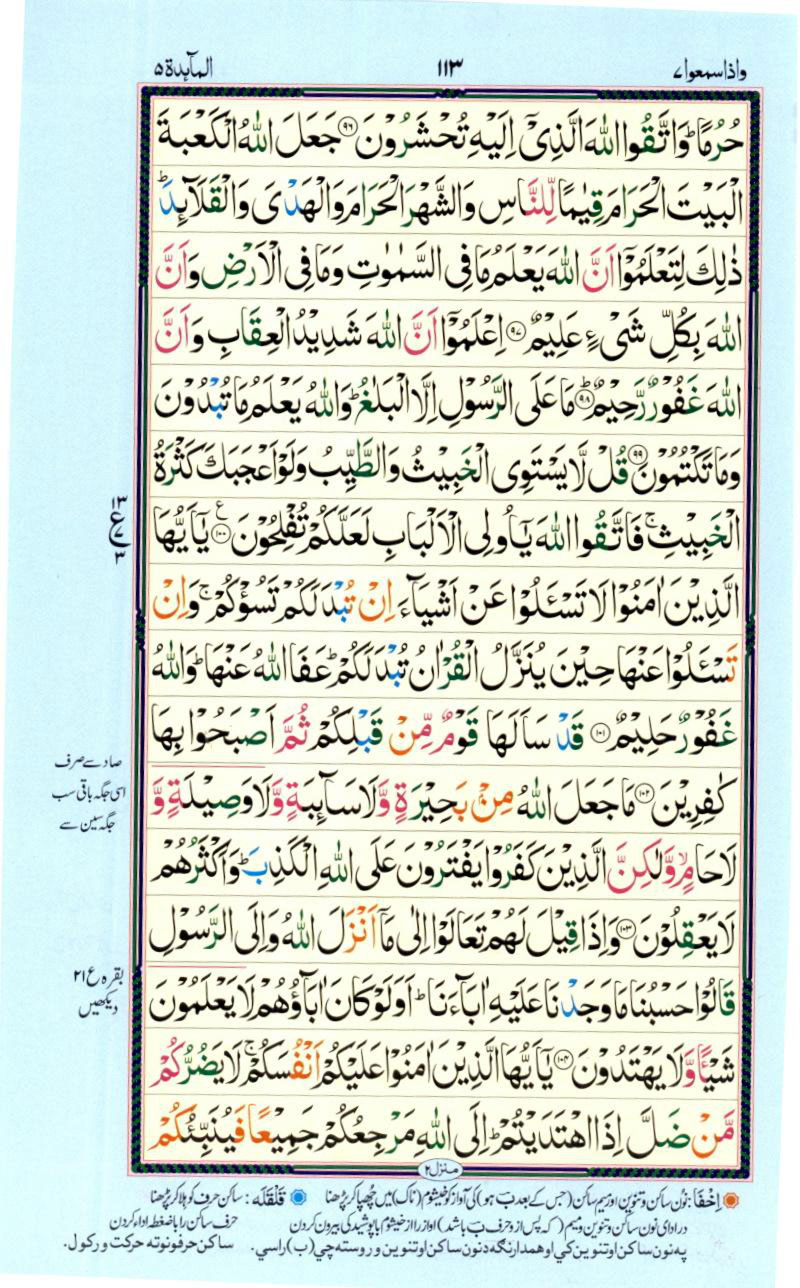 واذاسمعوا۷ ۱۱۳ المآئدة ۵
حُرُمًا ؕ وَاتَّقُوا اللّٰهَ الَّذِیْۤ اِلَیْهِ تُحْشَرُوْنَ ﴿۹۶﴾ جَعَلَ اللّٰهُ الْكَعْبَةَ
الْبَیْتَ الْحَرَامَ قِیٰمًا لِّلنَّاسِ وَالشَّهْرَ الْحَرَامَ وَالْهَدْیَ وَالْقَلَآئِدَ ؕ
ذٰلِكَ لِتَعْلَمُوْۤا اَنَّ اللّٰهَ یَعْلَمُ مَا فِی السَّمٰوٰتِ وَمَا فِی الْاَرْضِ وَاَنَّ
اللّٰهَ بِكُلِّ شَیْءٍ عَلِیْمٌ ﴿۹۷﴾ اِعْلَمُوْۤا اَنَّ اللّٰهَ شَدِیْدُ الْعِقَابِ وَاَنَّ
اللّٰهَ غَفُوْرٌ رَّحِیْمٌ ﴿۹۸﴾ ؕ مَا عَلَی الرَّسُوْلِ اِلَّا الْبَلٰغُ ؕ وَاللّٰهُ یَعْلَمُ مَا تُبْدُوْنَ
وَمَا تَكْتُمُوْنَ ﴿۹۹﴾ قُلْ لَّا یَسْتَوِی الْخَبِیْثُ وَالطَّیِّبُ وَلَوْ اَعْجَبَكَ كَثْرَةُ
الْخَبِیْثِ ۚ فَاتَّقُوا اللّٰهَ یٰۤاُولِی الْاَلْبَابِ لَعَلَّكُمْ تُفْلِحُوْنَ ﴿۱۰۰﴾ ع یٰۤاَیُّهَا
۱۳ ع ۷ ۳
الَّذِیْنَ اٰمَنُوْا لَا تَسْـَٔلُوْا عَنْ اَشْیَآءَ اِنْ تُبْدَ لَكُمْ تَسُؤْكُمْ ۚ وَاِنْ
تَسْـَٔلُوْا عَنْهَا حِیْنَ یُنَزَّلُ الْقُرْاٰنُ تُبْدَ لَكُمْ ؕ عَفَا اللّٰهُ عَنْهَا ؕ وَاللّٰهُ
غَفُوْرٌ حَلِیْمٌ ﴿۱۰۱﴾ قَدْ سَاَلَهَا قَوْمٌ مِّنْ قَبْلِكُمْ ثُمَّ اَصْبَحُوْا بِهَا
كٰفِرِیْنَ ﴿۱۰۲﴾ مَا جَعَلَ اللّٰهُ مِنْۢ بَحِیْرَةٍ وَّلَا سَآئِبَةٍ وَّلَا وَصِیْلَةٍ وَّ
صاد سے صرف
اسی جگہ باقی سب
جگہ سین سے
لَا حَامٍ ۙ وَّلٰكِنَّ الَّذِیْنَ كَفَرُوْا یَفْتَرُوْنَ عَلَی اللّٰهِ الْكَذِبَ ؕ وَاَكْثَرُهُمْ
لَا یَعْقِلُوْنَ ﴿۱۰۳﴾ وَاِذَا قِیْلَ لَهُمْ تَعَالَوْا اِلٰی مَاۤ اَنْزَلَ اللّٰهُ وَاِلَی الرَّسُوْلِ
قَالُوْا حَسْبُنَا مَا وَجَدْنَا عَلَیْهِ اٰبَآءَنَا ؕ اَوَلَوْ كَانَ اٰبَآؤُهُمْ لَا یَعْلَمُوْنَ
بقرہ ع ۲۱
دیکھیں
شَیْـًٔا وَّلَا یَهْتَدُوْنَ ﴿۱۰۴﴾ یٰۤاَیُّهَا الَّذِیْنَ اٰمَنُوْا عَلَیْكُمْ اَنْفُسَكُمْ ۚ لَا یَضُرُّكُمْ
مَّنْ ضَلَّ اِذَا اهْتَدَیْتُمْ ؕ اِلَی اللّٰهِ مَرْجِعُكُمْ جَمِیْعًا فَیُنَبِّئُكُمْ
منزل ۲
اِخْفَا: نُون ساکن و تنوین اور میم ساکن (جس کے بعد ب ہو) کی آواز کو خیشوم (ناک) میں چھپا کر پڑھنا قَلْقَلَہ: ساکن حرف کو ہلا کر پڑھنا
در ادای نون ساکن و تنوین و میم (که پس از و حرف ب باشد) اواز را از خیشوم با پوشیدگی بیرون کردن حرف ساکن را با ضغط اداء کردن
په نون ساکن او تنوین کي او همدارنګه د نون ساکن او تنوین و روسته چي (ب) راسي. ساکن حرفونو ته حرکت ورکول.